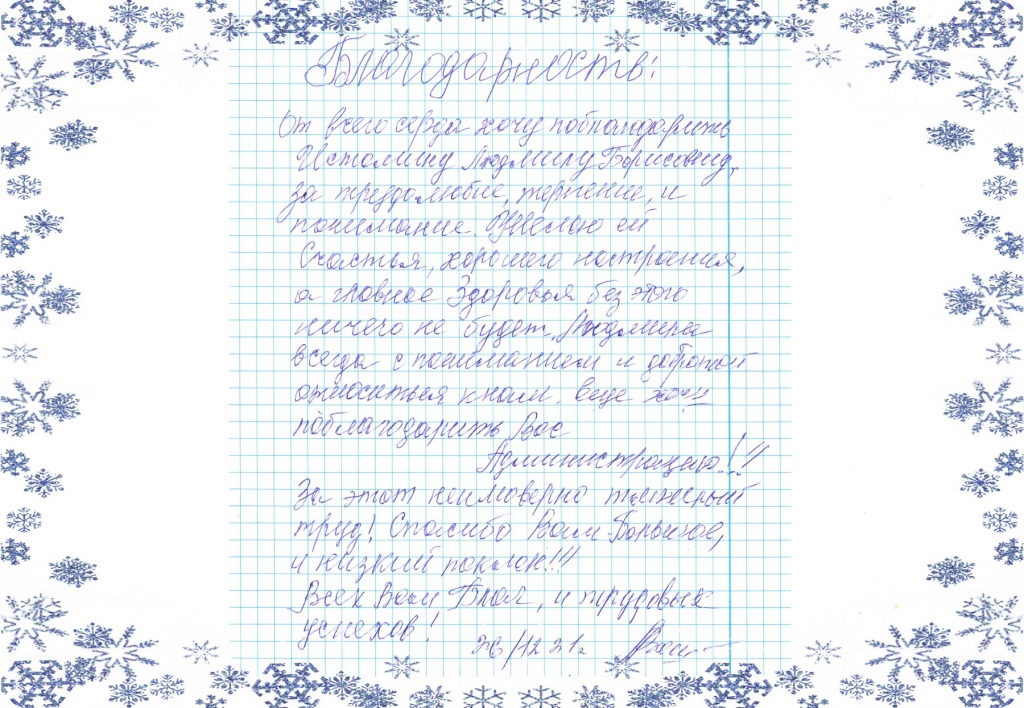 Благодарность!
От всего серда хочу поблагодарить
Истомину Людмилу Борисовну,
за трудолюбие, терпение, и
понимание. Желаю ей
Счастья, хорошего настроения,
а главное Здоровья без этого
ничего не будет. Людмила
всегда с пониманием и добротой
относиться к нам. Еще хочу
поблагодарить Вас
Администрацию!!!
За этот неимоверно тяжелый
труд! Спасибо Вам Большое,
и низкий поклон!!!
Всех Вам Благ, и трудовых
успехов!
26/12 21г